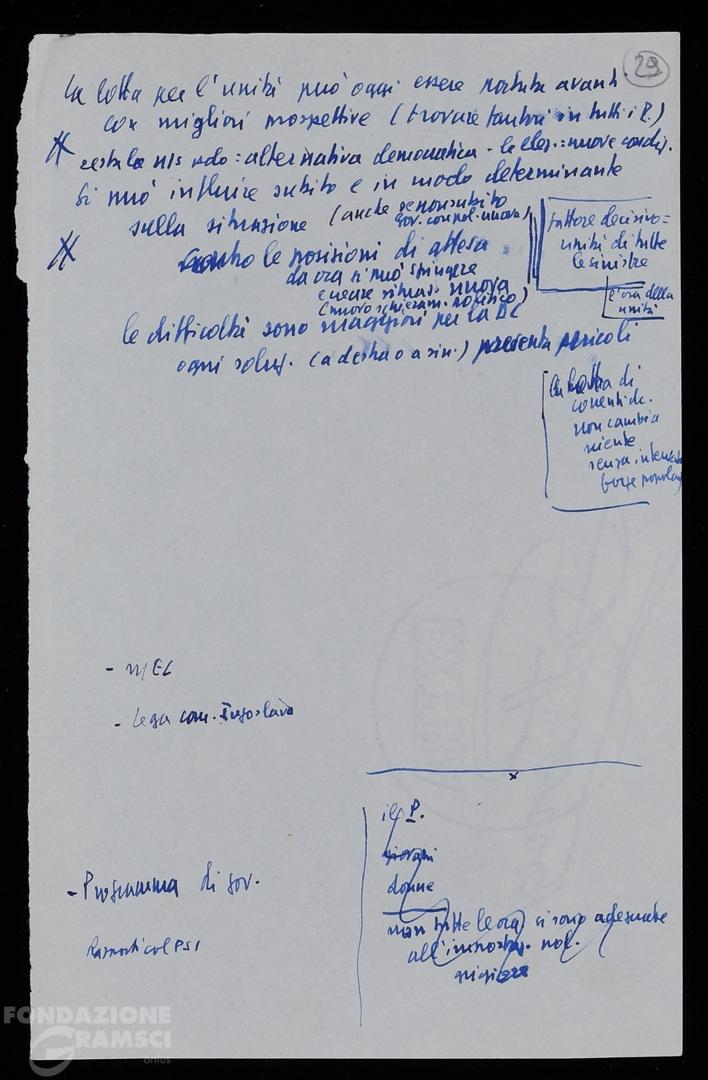 29
La lotta per l'unità può oggi essere portata avanti
con migliori prospettive (trovare in tutti i P.)
resta la ns : alternativa democratica - le elez. = nuove condiz.
Si può influire subito e in modo determinante
sulla situazione (anche se non subito
gov. con pol. nuova)
contro le posizioni di attesa
da ora si può spingere
creare situaz. nuova
(nuovo schieram. politico)
fattore decisivo =
unità di tutte
le sinistre
è l'ora della
unità
le difficoltà sono maggiori per la DC
ogni soluz. (a destra o a sin.) presenta pericoli
di
correnti dc.
non cambia
niente
senza intervento
forze popolari
- MEC
- Lega com. Jugoslava
- Programma di gov.
Rapporti col PSI
il P.
giovani
donne
non tutte le ci sono adeguate
all'impostaz. pol.